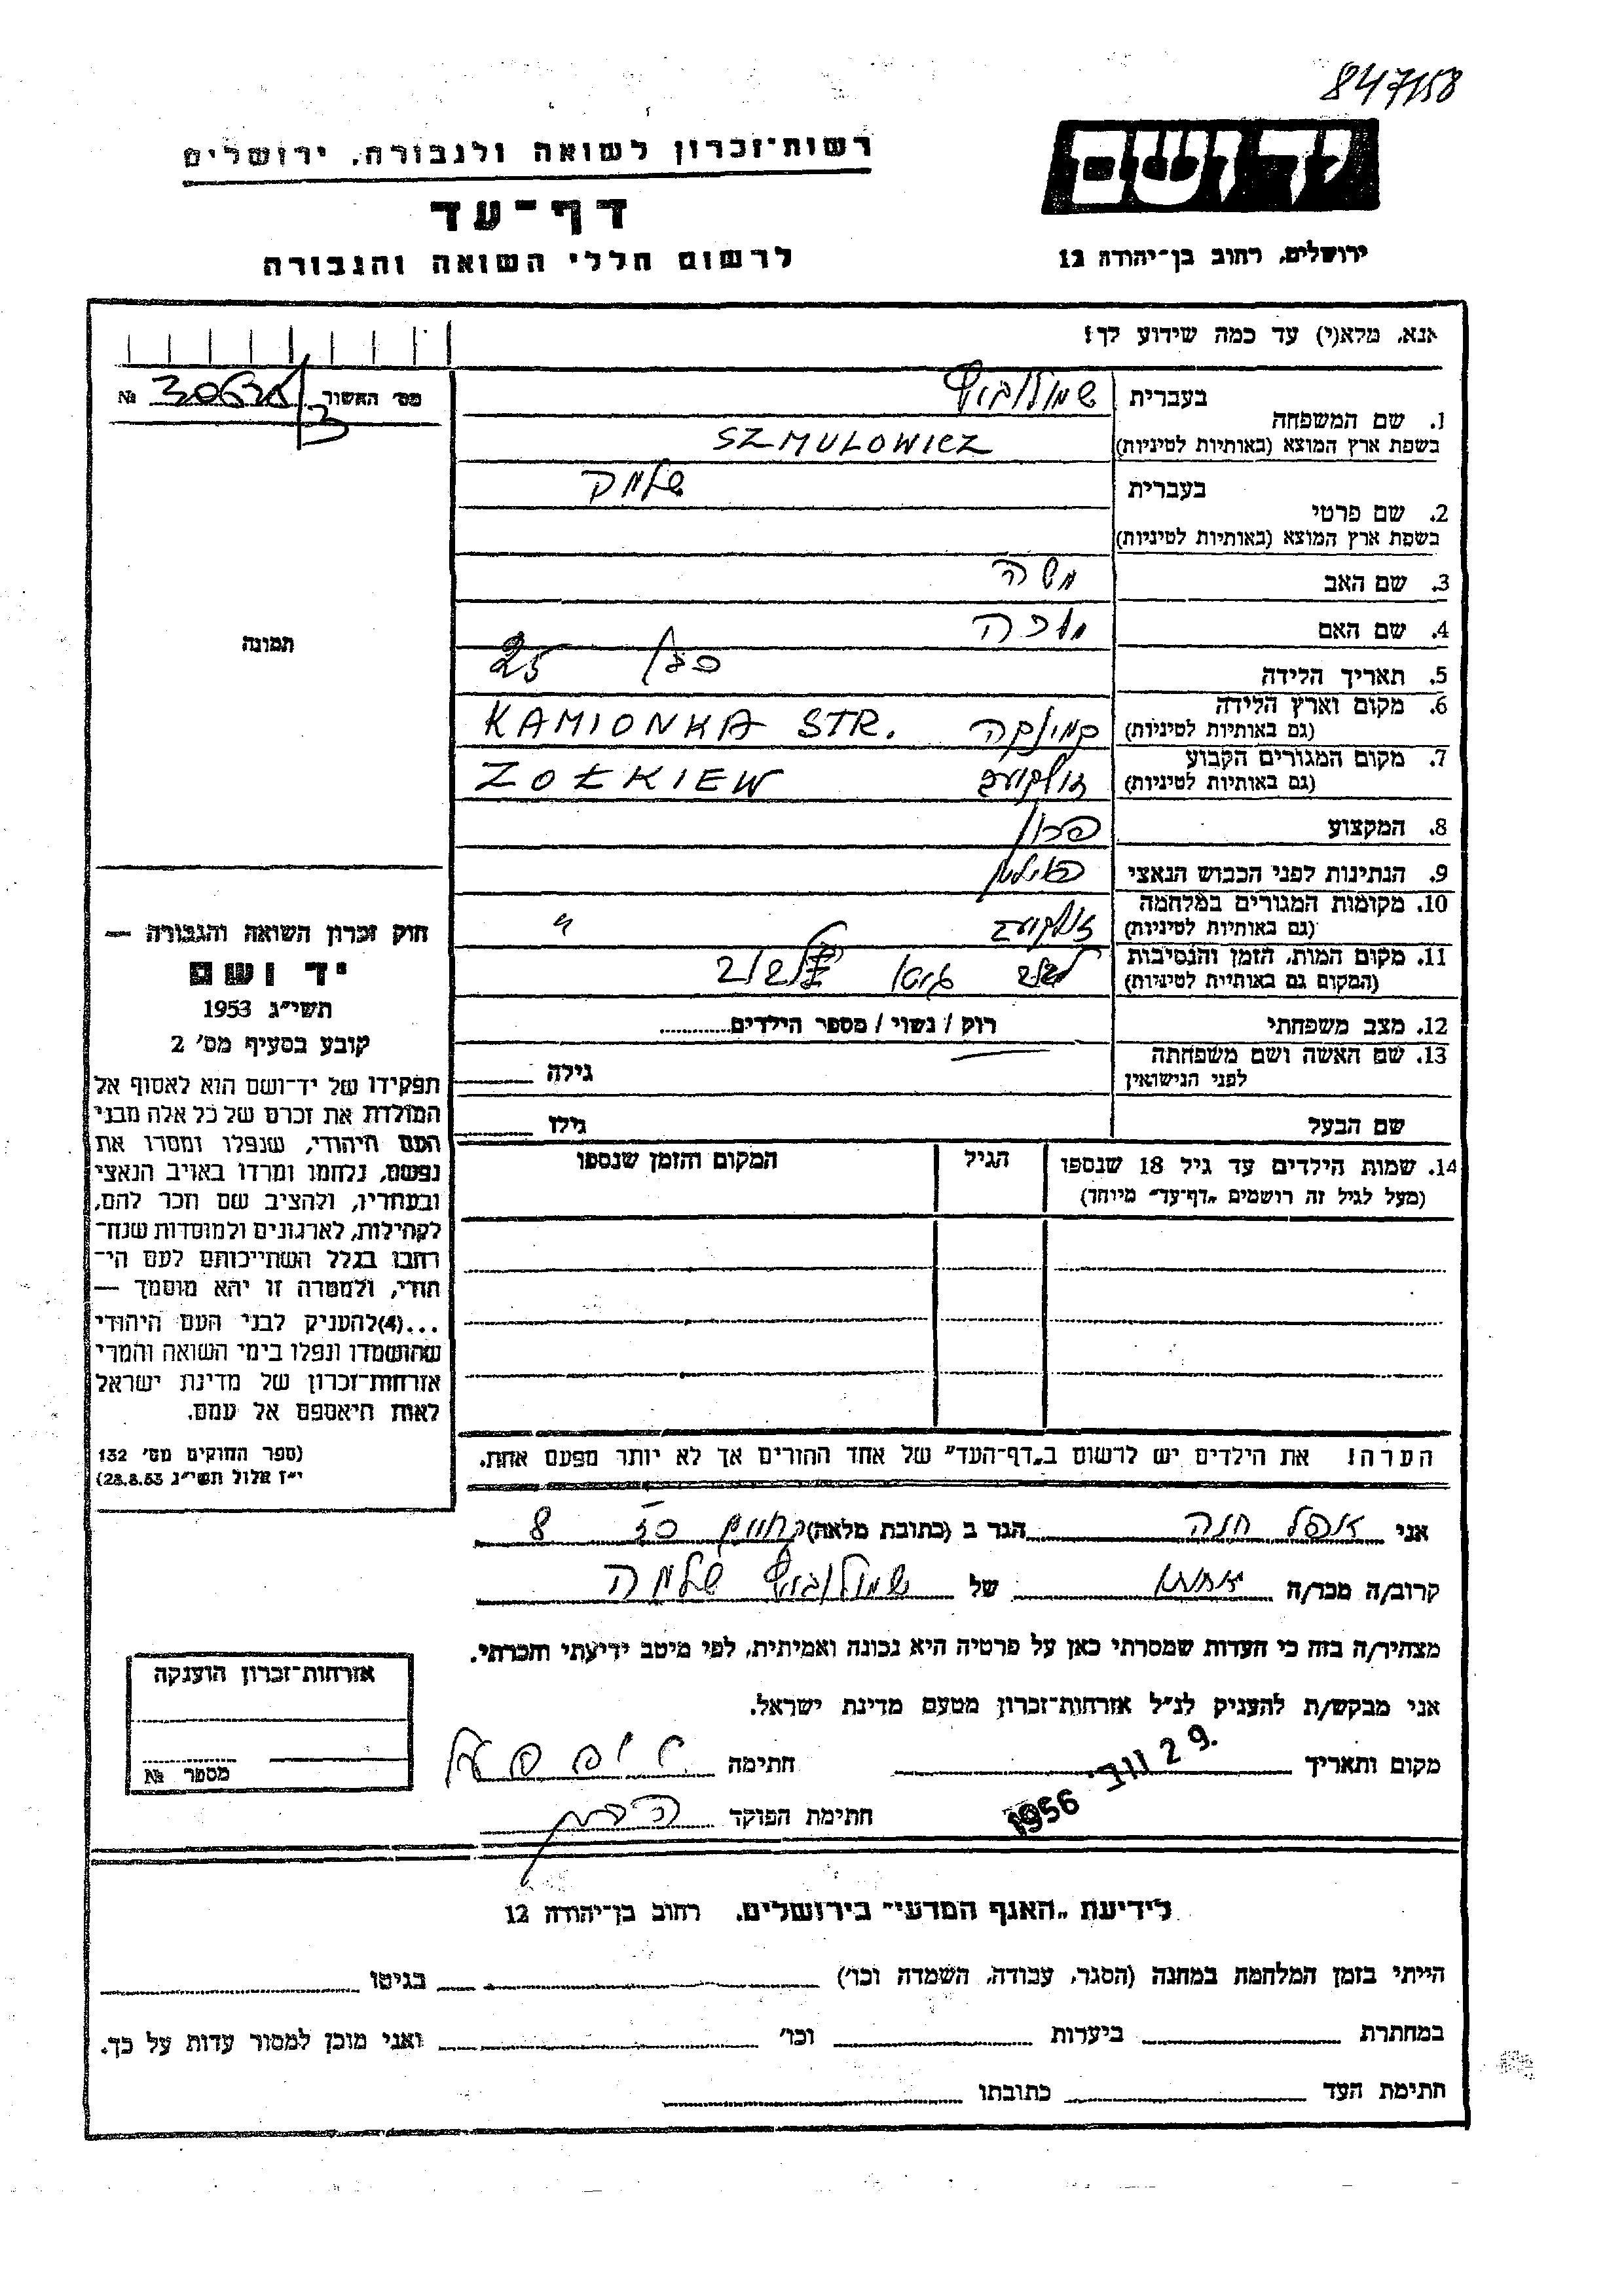 847158
רשות־זכרון לשואה ולגבורה, ירושלים
יד ושם
דף־עד
לרשום חללי השואה והגבורה
ירושלים, רחוב בן־יהודה 12
אנא, מלא(י) עד כמה שידוע לך!
מס׳ האשור №
1. שם המשפחה
בעברית שמולוביץ
בשפת ארץ המוצא (באותיות לטיניות) SZMULOWICZ
2. שם פרטי
בעברית
בשפת ארץ המוצא (באותיות לטיניות)
3. שם האב משה
4. שם האם מלכה
5. תאריך הלידה 25
6. מקום וארץ הלידה
(גם באותיות לטיניות) קמיונקה KAMIONKA STR.
7. מקום המגורים הקבוע
(גם באותיות לטיניות) זולקועב ZOŁKIEW
8. המקצוע
9. הנתינות לפני הכבוש הנאצי
10. מקומות המגורים במלחמה
(גם באותיות לטיניות) זולקועב "
11. מקום המות, הזמן והנסיבות
(המקום גם באותיות לטיניות)
12. מצב משפחתי רוק / נשוי / מספר הילדים
13. שם האשה ושם משפחתה
לפני הנישואין גילה
שם הבעל גילו
14. שמות הילדים עד גיל 18 שנספו הגיל המקום והזמן שנספו
(מעל לגיל זה רושמים „דף־עד״ מיוחד)
הערה! את הילדים יש לרשום ב„דף־העד״ של אחד ההורים אך לא יותר מפעם אחת.
תמונה
חוק זכרון השואה והגבורה —
יד ושם
תשי״ג 1953
קובע בסעיף מס׳ 2
תפקידו של יד־ושם הוא לאסוף אל
המולדת את זכרם של כל אלה מבני
העם היהודי, שנפלו ומסרו את
נפשם, נלחמו ומרדו באויב הנאצי
ובעוזריו, ולהציב שם וזכר להם,
לקהילות, לארגונים ולמוסדות שנח־
רבו בגלל השתייכותם לעם הי־
הודי, ולמטרה זו יהא מוסמך —
...(4)להעניק לבני העם היהודי
שהושמדו ונפלו בימי השואה והמרי
אזרחות־זכרון של מדינת ישראל
לאות היאספם אל עמם.
(ספר החוקים מס׳ 132
י״ז אלול תשי״ג 28.8.53)
אני חנה הגר ב (כתובת מלאה) 8
קרוב/ה מכר/ה של שמולוביץ
מצהיר/ה בזה כי העדות שמסרתי כאן על פרטיה היא נכונה ואמיתית, לפי מיטב ידיעתי והכרתי.
אני מבקש/ת להעניק לנ״ל אזרחות־זכרון מטעם מדינת ישראל.
מקום ותאריך 29 נוב׳ 1956 חתימה
חתימת הפוקד
אזרחות־זכרון הוענקה
מספר №
לידיעת „האגף המדעי״ בירושלים, רחוב בן־יהודה 12
הייתי בזמן המלחמה במחנה (הסגר, עבודה, השמדה וכו׳) בגיטו
במחתרת ביערות וכו׳ ואני מוכן למסור עדות על כך.
חתימת העד כתובתו